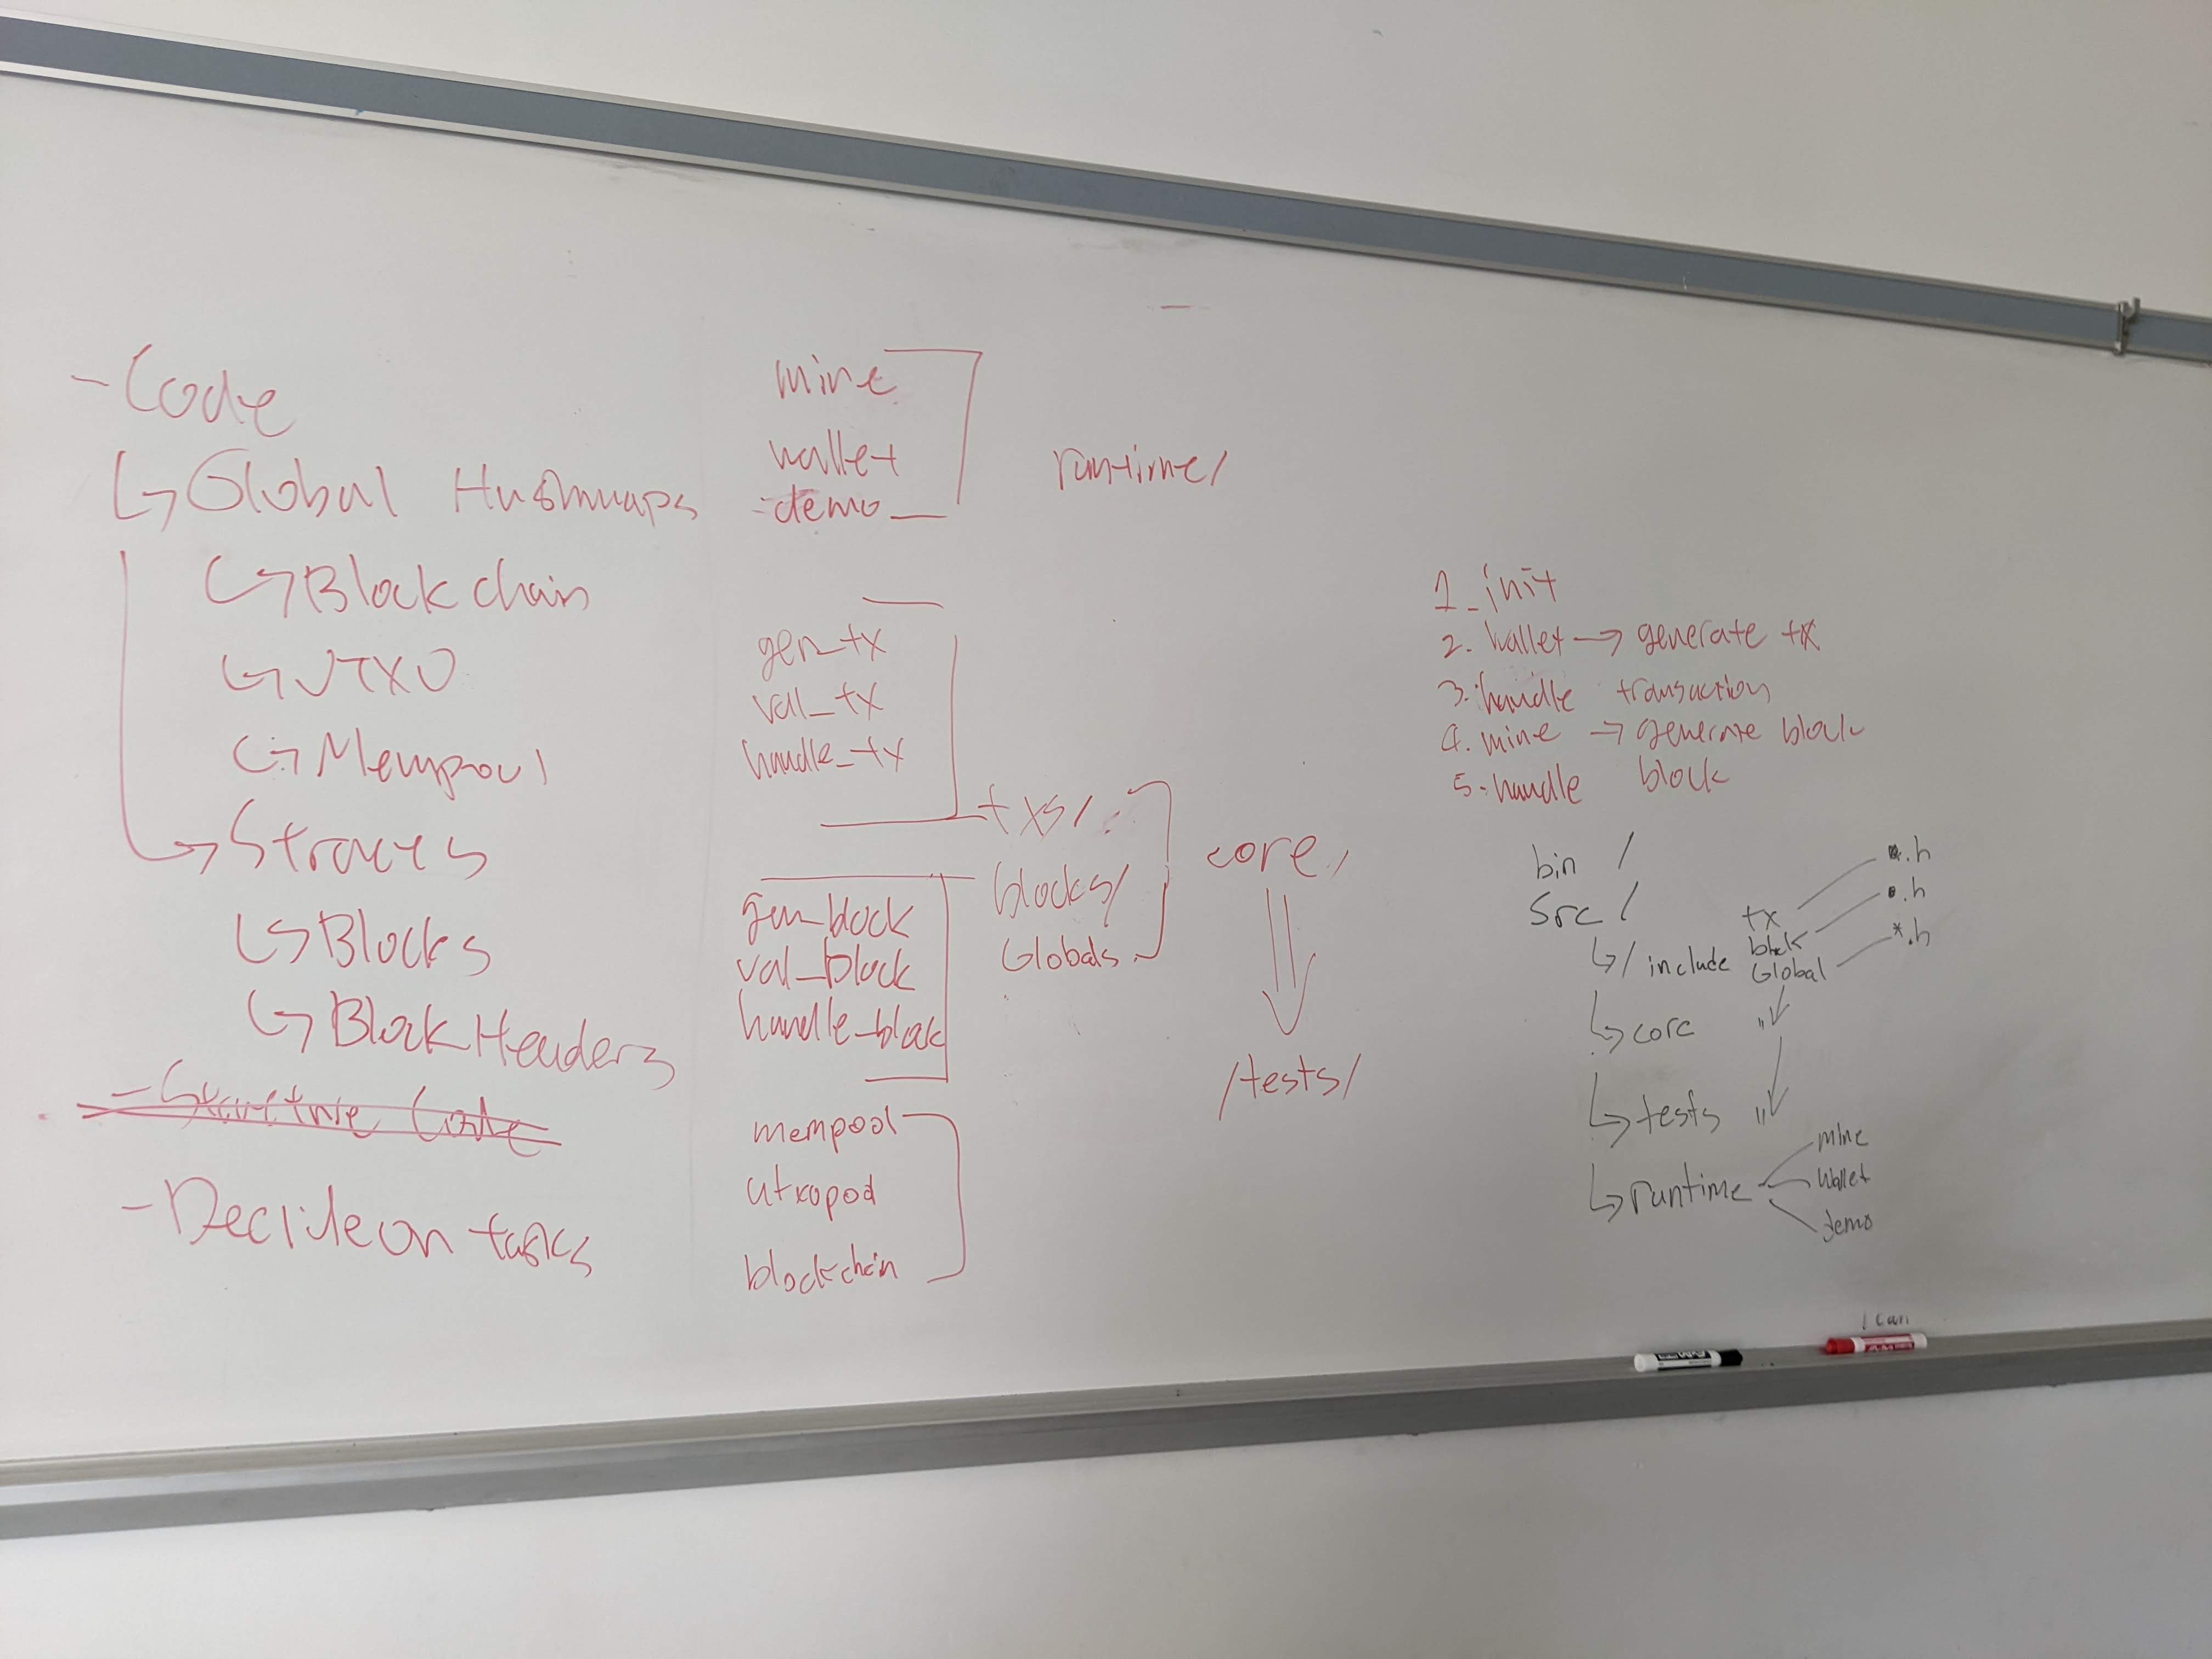 - Code
↳ Global Hashmaps
↳ Blockchain
↳ UTXO
↳ Mempool
↳ Structs
↳ Blocks
↳ Block Headers
- Structure Code
- Decide on tasks
mine
wallet
demo
runtime/
gen_tx
val_tx
handle_tx
txs/
gen_block
val_block
handle_block
blocks/
Globals
core/
/tests/
mempool
utxopool
blockchain
1. init
2. wallet → generate tx
3. handle transaction
4. mine → generate block
5. handle block
bin /
src /
↳ / include
tx
block
Global
.h
.h
*.h
↳ core "
↳ tests "
↳ runtime
mine
wallet
demo